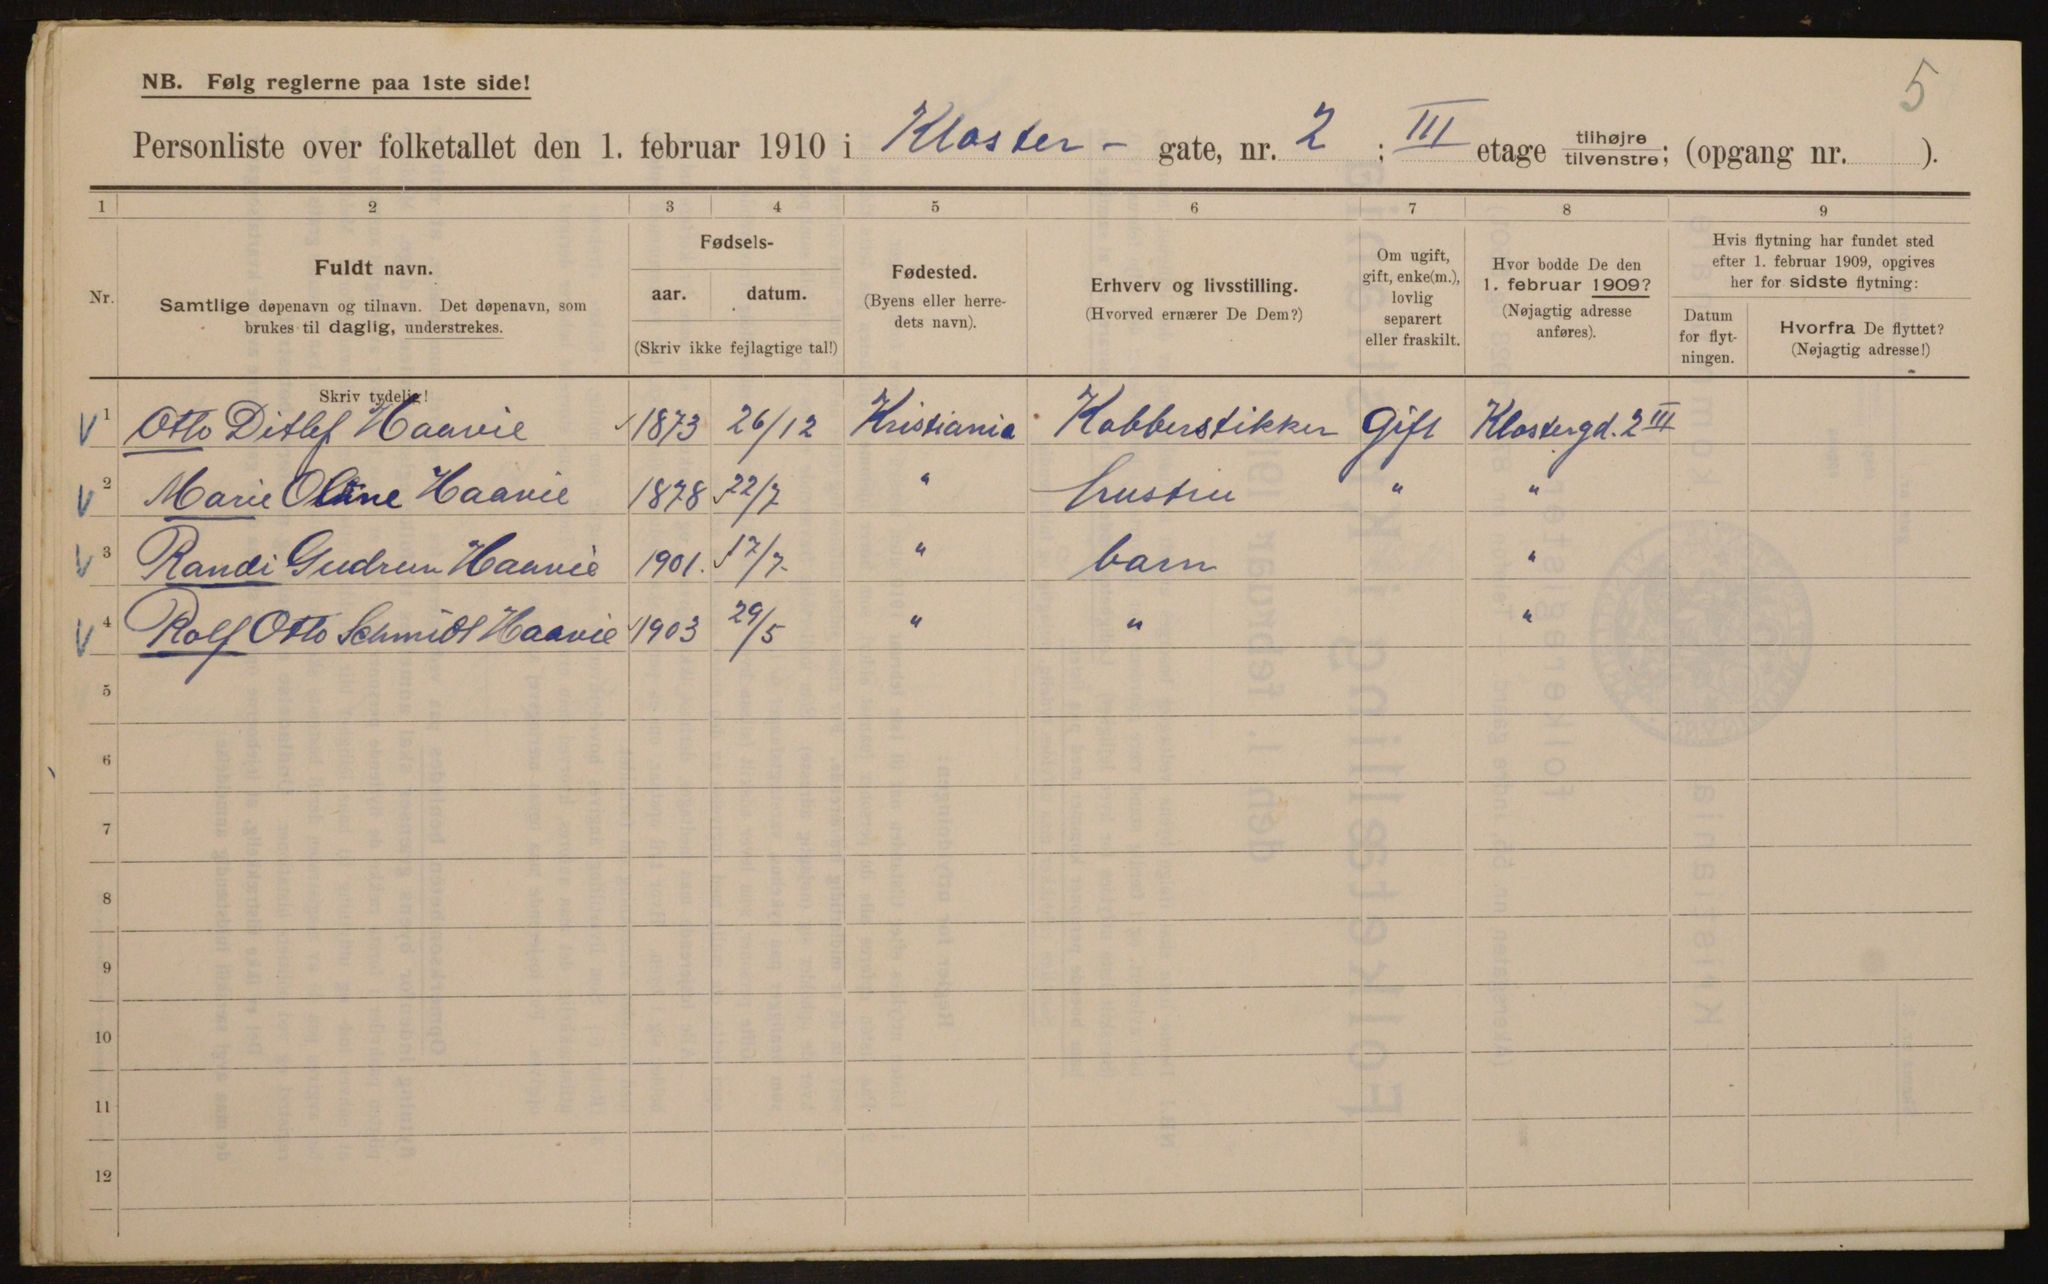 5
NB. Følg reglerne paa 1ste side!
Personliste over folketallet den 1. februar 1910 i Kloster- gate, nr. 2 ; III etage tilhøjre/tilvenstre; (opgang nr. ).
1 2 3 4 5 6 7 8 9
Nr.
Fuldt navn.
Samtlige døpenavn og tilnavn. Det døpenavn, som
brukes til daglig, understrekes.
Fødsels-
aar. datum.
(Skriv ikke fejlagtige tal!)
Fødested.
(Byens eller herre-
dets navn).
Erhverv og livsstilling.
(Hvorved ernærer De Dem?)
Om ugift,
gift, enke(m.),
lovlig
separert
eller fraskilt.
Hvor bodde De den
1. februar 1909?
(Nøjagtig adresse
anføres).
Hvis flytning har fundet sted
efter 1. februar 1909, opgives
her for sidste flytning:
Datum
for flyt-
ningen.
Hvorfra De flyttet?
(Nøjagtig adresse!)
Skriv tydelig!
1 Otto Ditlef Haavie 1873 26/12 Kristiania Kobberstikker Gift Klostergd. 2 III
2 Marie Oline Haavie 1878 22/7 " hustru " "
3 Randi Gudrun Haavie 1901. 17/7. " barn "
4 Rolf Otto Schmidt Haavie 1903 29/5 " " "
5
6
7
8
9
10
11
12